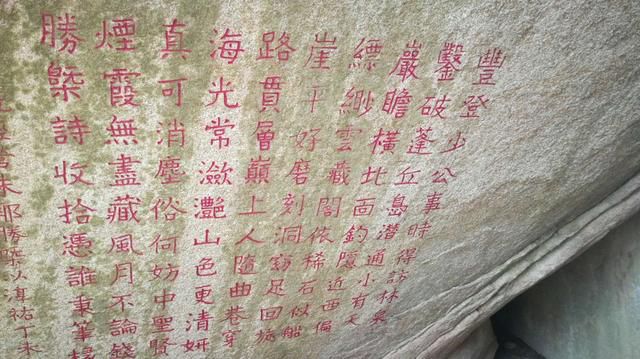 豐登少公事時得訪林泉
鑿破蓬丘島潛通小有天
巖瞻橫北面釣隱近西偏
縹緲雲藏閣依稀石似船
崖平好磨刻洞窈足回旋
路貫層巔上人隨曲巷穿
海光常瀲灩山色更清妍
真可消塵俗何妨中聖賢
煙霞無盡藏風月不論錢
勝槩詩收拾憑誰秉筆椽
耶勝槩以淳祐丁未